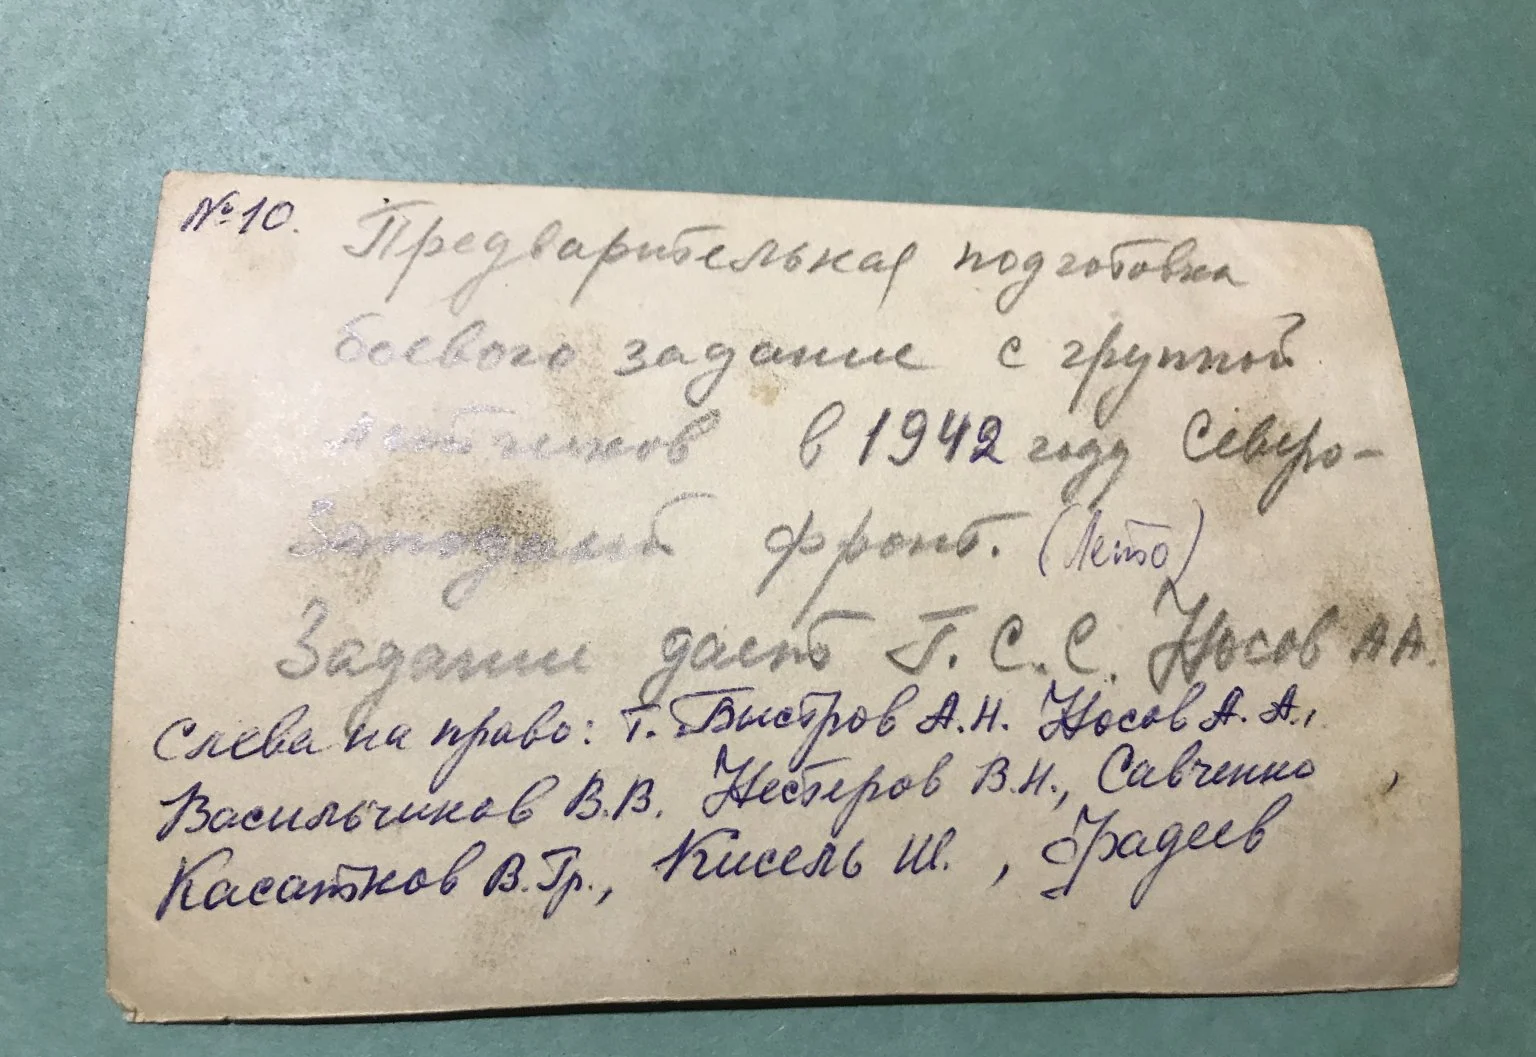 №10. Предварительная подготовка
боевого задание с группой
летчиков в 1942 году Северо-
Западный фронт. (Лето)
Задание дает Г. С. С. Носов А А.
Слева на право: т. Быстров А.Н. Носов А. А.,
Васильчиков В.В. Нестеров В.Н., Савченко ,
Касатков В.Гр., Кисель Ш. , Фадеев